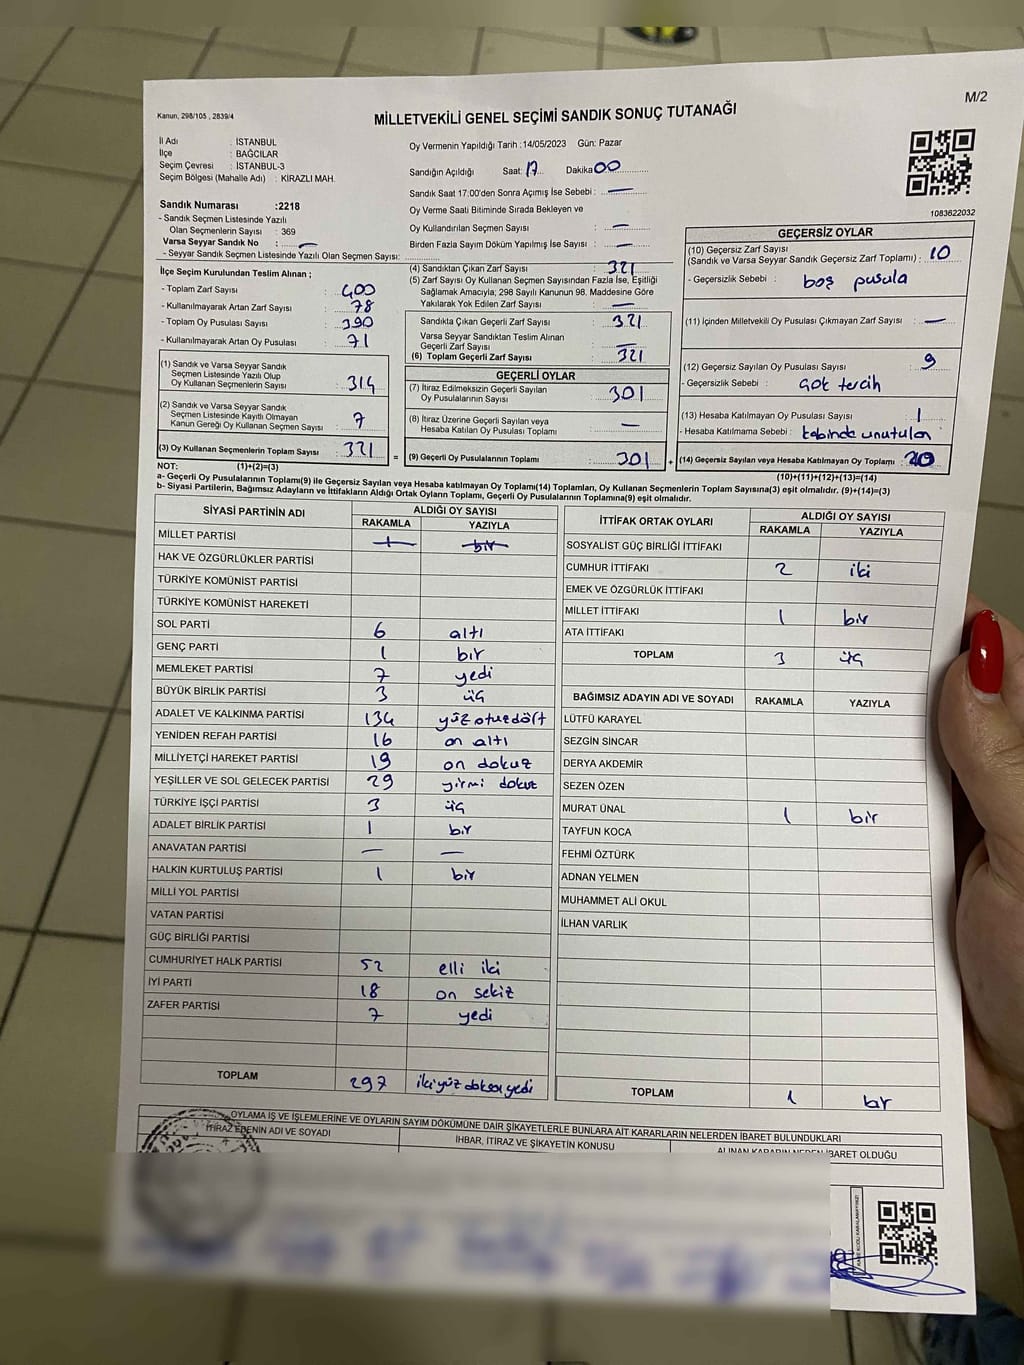 M/2
Kanun, 298/105 , 2839/4
MİLLETVEKİLİ GENEL SEÇİMİ SANDIK SONUÇ TUTANAĞI
İl Adı : İSTANBUL
İlçe : BAĞCILAR
Seçim Çevresi : İSTANBUL-3
Seçim Bölgesi (Mahalle Adı) : KİRAZLI MAH.
Sandık Numarası :2218
- Sandık Seçmen Listesinde Yazılı
Olan Seçmenlerin Sayısı : 369
Varsa Seyyar Sandık No : —
- Seyyar Sandık Seçmen Listesinde Yazılı Olan Seçmen Sayısı:
Oy Vermenin Yapıldığı Tarih :14/05/2023 Gün: Pazar
Sandığın Açıldığı Saat: 17 Dakika 00
Sandık Saat 17:00'den Sonra Açımış İse Sebebi : —
Oy Verme Saati Bitiminde Sırada Bekleyen ve
Oy Kullandırılan Seçmen Sayısı —
Birden Fazla Sayım Döküm Yapılmış İse Sayısı : —
1083622032
İlçe Seçim Kurulundan Teslim Alınan ;
- Toplam Zarf Sayısı : 400
- Kullanılmayarak Artan Zarf Sayısı : 78
- Toplam Oy Pusulası Sayısı : 390
- Kullanılmayarak Artan Oy Pusulası : 71
(1) Sandık ve Varsa Seyyar Sandık
Seçmen Listesinde Yazılı Olup
Oy Kullanan Seçmenlerin Sayısı : 314
(2) Sandık ve Varsa Seyyar Sandık
Seçmen Listesinde Kayıtlı Olmayan
Kanun Gereği Oy Kullanan Seçmen Sayısı : 7
(3) Oy Kullanan Seçmenlerin Toplam Sayısı : 321
(4) Sandıktan Çıkan Zarf Sayısı : 321
(5) Zarf Sayısı Oy Kullanan Seçmen Sayısından Fazla İse, Eşitliği
Sağlamak Amacıyla; 298 Sayılı Kanunun 98. Maddesine Göre
Yakılarak Yok Edilen Zarf Sayısı : —
Sandıkta Çıkan Geçerli Zarf Sayısı : 321
Varsa Seyyar Sandıktan Teslim Alınan
Geçerli Zarf Sayısı : —
(6) Toplam Geçerli Zarf Sayısı : 321
GEÇERLİ OYLAR
(7) İtiraz Edilmeksizin Geçerli Sayılan
Oy Pusulasının Sayısı : 301
(8) İtiraz Üzerine Geçerli Sayılan veya
Hesaba Katılan Oy Pusulası Toplamı : —
= (9) Geçerli Oy Pusulalarının Toplamı : 301
GEÇERSİZ OYLAR
(10) Geçersiz Zarf Sayısı
(Sandık ve Varsa Seyyar Sandık Geçersiz Zarf Toplamı) : 10
- Geçersizlik Sebebi : boş pusula
(11) İçinden Milletvekili Oy Pusulası Çıkmayan Zarf Sayısı : —
(12) Geçersiz Sayılan Oy Pusulası Sayısı : 9
- Geçersizlik Sebebi : çok tercih
(13) Hesaba Katılmayan Oy Pusulası Sayısı : 1
- Hesaba Katılmama Sebebi : kabinde unutulan
+ (14) Geçersiz Sayılan veya Hesaba Katılmayan Oy Toplamı : 20
NOT: (1)+(2)=(3) (10)+(11)+(12)+(13)=(14)
a- Geçerli Oy Pusulalarının Toplamı(9) ile Geçersiz Sayılan veya Hesaba Katılmayan Oy Toplamı(14) Toplamları, Oy Kullanan Seçmenlerin Toplam Sayısına(3) eşit olmalıdır. (9)+(14)=(3)
b- Siyasi Partilerin, Bağımsız Adayların ve İttifakların Aldığı Ortak Oyların Toplamı, Geçerli Oy Pusulalarının Toplamına(9) eşit olmalıdır.
SİYASİ PARTİNİN ADI ALDIĞI OY SAYISI
RAKAMLA YAZIYLA
MİLLET PARTİSİ 1 bir
HAK VE ÖZGÜRLÜKLER PARTİSİ
TÜRKİYE KOMÜNİST PARTİSİ
TÜRKİYE KOMÜNİST HAREKETİ
SOL PARTİ 6 altı
GENÇ PARTİ 1 bir
MEMLEKET PARTİSİ 7 yedi
BÜYÜK BİRLİK PARTİSİ 3 üç
ADALET VE KALKINMA PARTİSİ 134 yüz otuz dört
YENİDEN REFAH PARTİSİ 16 on altı
MİLLİYETÇİ HAREKET PARTİSİ 19 on dokuz
YEŞİLLER VE SOL GELECEK PARTİSİ 29 yirmi dokuz
TÜRKİYE İŞÇİ PARTİSİ 3 üç
ADALET BİRLİK PARTİSİ 1 bir
ANAVATAN PARTİSİ — —
HALKIN KURTULUŞ PARTİSİ 1 bir
MİLLİ YOL PARTİSİ
VATAN PARTİSİ
GÜÇ BİRLİĞİ PARTİSİ
CUMHURİYET HALK PARTİSİ 52 elli iki
İYİ PARTİ 18 on sekiz
ZAFER PARTİSİ 7 yedi
TOPLAM 297 iki yüz doksan yedi
İTTİFAK ORTAK OYLARI ALDIĞI OY SAYISI
RAKAMLA YAZIYLA
SOSYALİST GÜÇ BİRLİĞİ İTTİFAKI
CUMHUR İTTİFAKI 2 iki
EMEK VE ÖZGÜRLÜK İTTİFAKI
MİLLET İTTİFAKI 1 bir
ATA İTTİFAKI
TOPLAM 3 üç
BAĞIMSIZ ADAYIN ADI VE SOYADI RAKAMLA YAZIYLA
LÜTFÜ KARAYEL
SEZGİN SİNCAR
DERYA AKDEMİR
SEZEN ÖZEN
MURAT ÜNAL 1 bir
TAYFUN KOCA
FEHMİ ÖZTÜRK
ADNAN YELMEN
MUHAMMET ALİ OKUL
İLHAN VARLIK
TOPLAM 1 bir
OYLAMA İŞ VE İŞLEMLERİNE VE OYLARIN SAYIM DÖKÜMÜNE DAİR ŞİKAYETLERLE BUNLARA AİT KARARLARIN NELERDEN İBARET BULUNDUKLARI
İTİRAZ EDENİN ADI VE SOYADI İHBAR, İTİRAZ VE ŞİKAYETİN KONUSU ALINAN KARARIN NEDEN İBARET OLDUĞU